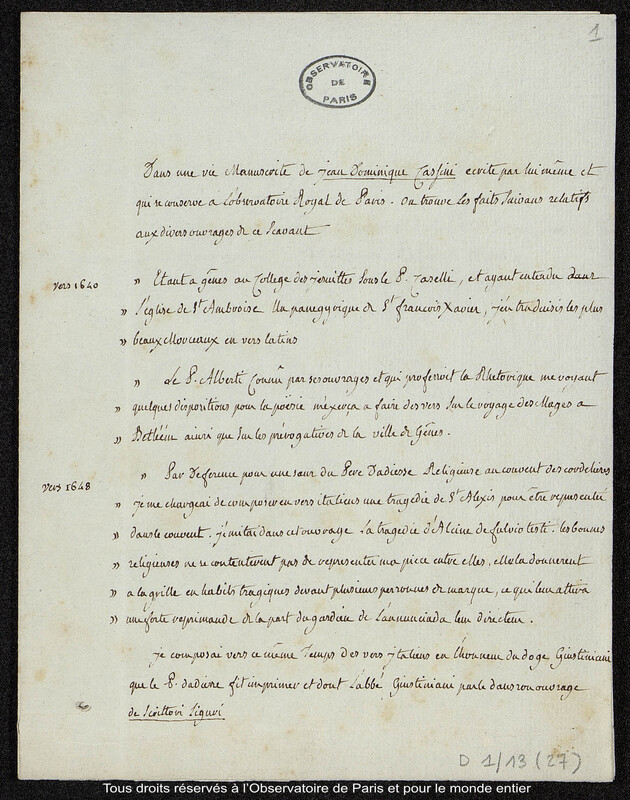 1
OBSERVATOIRE
DE
PARIS
Dans une vie Manuscrite de Jean Dominique Cassini ecrite par lui même et
qui se conserve a L'observatoire Royal de Paris. on trouve les faits suivans relatifs
aux divers ouvrages de ce Scavant
vers 1640
" Etant a gênes au College des Jesuittes sous le P. Caselli, et ayant entendu dans
" l'église de St Ambroise Un panegyrique de St francois Xavier, j'en traduisis les plus
" beaux Morceaux en vers latins
" Le P. Alberti Connu par ses ouvrages et qui professoit la Rhetorique me voyant
" quelques dispositions pour la poësie m'exerça a faire des vers sur le voyage des Mages a
" Bethléem ainsi que sur les prérogatives de la ville de Gênes.
vers 1648
" Par Deference pour une sœur du Pere Dadiesse Religieuse au couvent des cordelieres
" je me chargeai de composer en vers italiens une tragedie de St Alexis pour être representée
" dans le couvent. j'imitai dans cet ouvrage La tragedie d'Alcine de fulvio testi. les bonnes
" religieuses ne se contenterent pas de representer ma piece entre elles, elles la donnerent
" a la grille en habits tragiques devant plusieurs personnes de marque, ce qui leur attira
" une forte reprimande de la part du gardien de L'annunciada leur directeur.
je composai vers ce même Temps Des vers jtaliens en l'honneur du doge Giustiniani
que le P. dadiesse fit imprimer et dont L'abbé Giustiniani parle dans son ouvrage
de Scrittori Liguri
D 1/13 (27)
Tous droits réservés à l'Observatoire de Paris et pour le monde entier